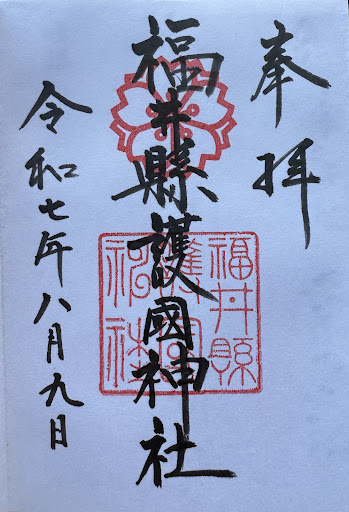 奉拝
福井縣護國神社
福井縣
護國
神社
令和七年八月九日